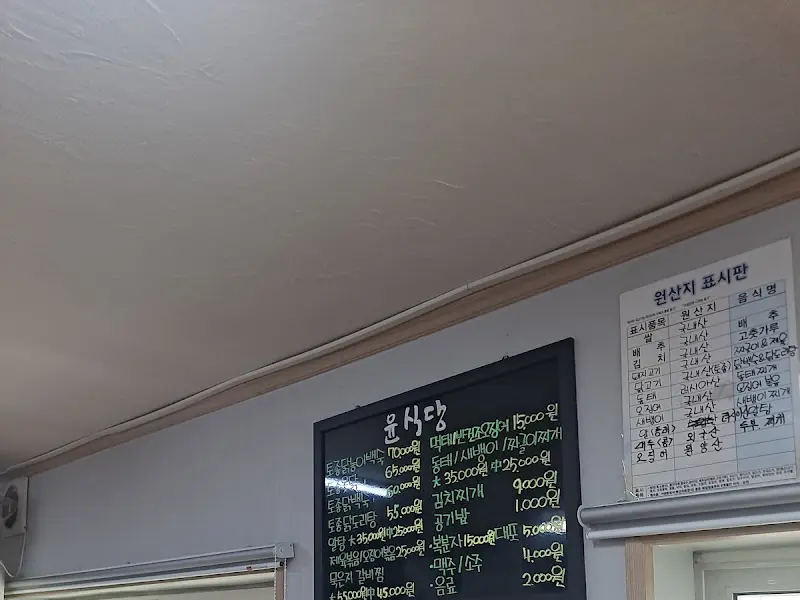 윤식당
토종닭능이백숙 70,000원
65,000원
토종닭백숙 60,000원
토종닭도리탕 55,000원
알탕 大35,000원 中25,000원
제육볶음/오징어볶음 25,000원
묵은지 갈비찜
大55,000원 中45,000원
먹태/반건조오징어 15,000원
동태/새뱅이/짜글이찌개
大 35,000원 中25,000원
김치찌개 9,000원
공기밥 1,000원
·복분자15,000원 대포 5,000원
·맥주/소주 4,000원
·음료 2,000원
원산지 표시판
표시품목 원산지 음식명
쌀 국내산
배추 국내산 배추
김치 국내산 고춧가루
돼지고기 국내산 짜글이&제육
닭고기 국내산(토종) 닭백숙&닭도리탕
동태 러시아산 동태찌개
오징어 국내산 오징어볶음
새뱅이 새뱅이찌개
알(동태) 러시아산 알탕
두부(콩) 외국산 두부, 찌개
오징어 원양산